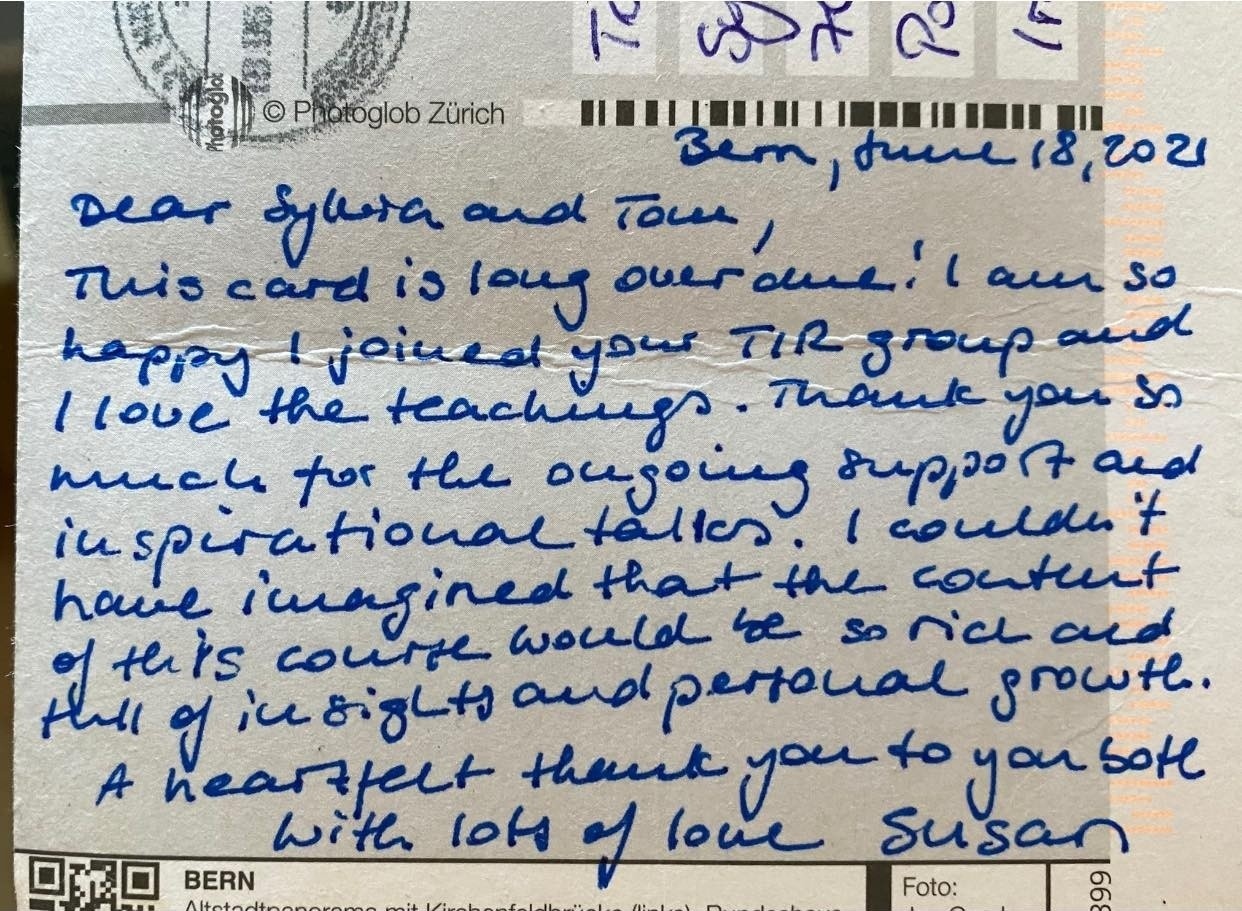 © Photoglob Zürich
Photoglob
Bern, June 18, 2021
Dear Sylvia and Tom,
This card is long overdue! I am so
happy I joined your TIR group and
I love the teachings. Thank you so
much for the ongoing support and
inspirational talks. I couldn't
have imagined that the content
of this course would be so rich and
full of insights and personal growth.
A heartfelt thank you to you both
With lots of love Susan
BERN
Altstadtpanorama mit Kirchenfeldbrücke (links), Bundeshaus
Foto:
399